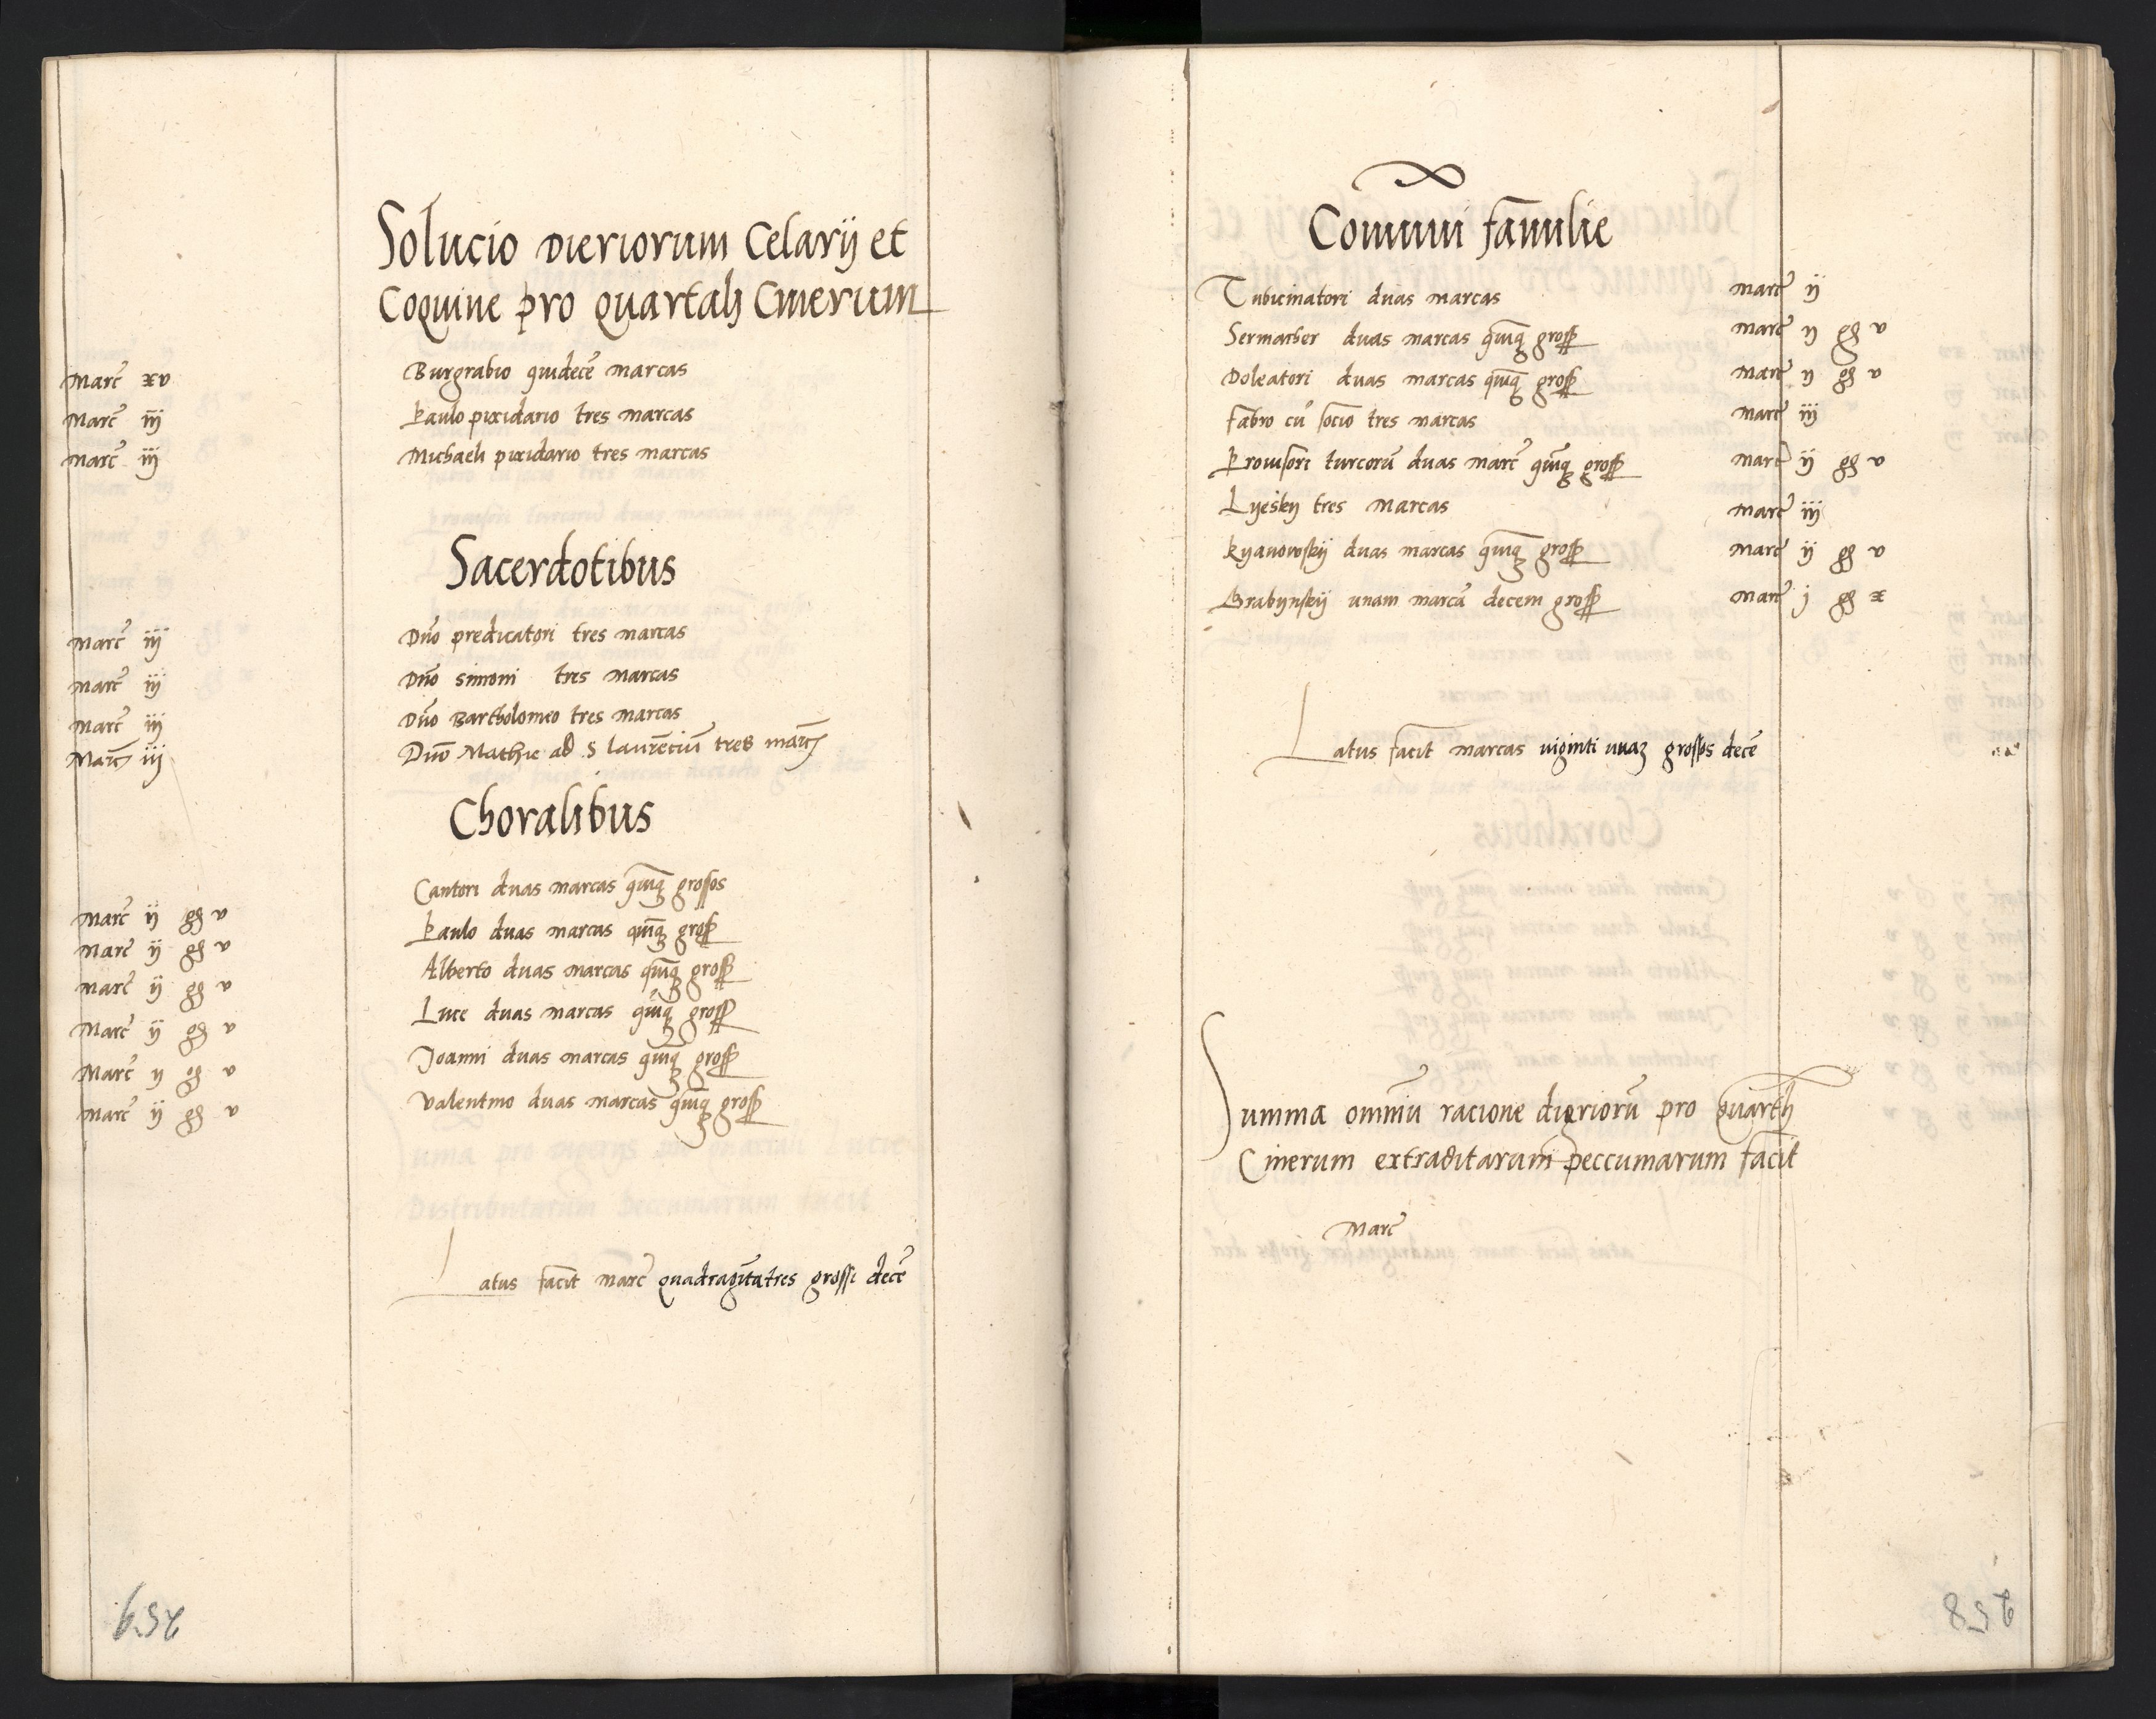 Solucio dieriorum Celarij et
Coquine pro quartalj Cinerum
Marc̄ xv Burgrabio quīdecē marcas
Marc̄ iij Paulo pixidario tres marcas
Marc̄ iij Michaeli pixidario tres marcas
Sacerdotibus
Marc̄ iij Dn̄o predicatori tres marcas
Marc̄ iij Dn̄o simoni tres marcas
Marc̄ iij Dn̄o Bartholomeo tres marcas
Marc̄ iij Dn̄o Mathie ad S laurēciū tres marc̄
Choralibus
Marc̄ ij gg v Cantori duas marcas quīqȝ grossos
Marc̄ ij gg v Paulo duas marcas quīqȝ gross
Marc̄ ij gg v Alberto duas marcas quīqȝ gross
Marc̄ ij gg v Luce duas marcas quīqȝ gross
Marc̄ ij gg v Joanni duas marcas quīqȝ gross
Marc̄ ij gg v Valentino duas marcas quīqȝ gross
Latus facit marc̄ quadragīta tres grossi decē
259
Com̄uni familie
Tubicinatori duas marcas Marc̄ ij
Sermather duas marcas quīqȝ gross Marc̄ ij gg v
Doleatori duas marcas quīqȝ gross Marc̄ ij gg v
Fabro cū socio tres marcas Marc̄ iij
Prouisori turcorū duas marc̄ quīqȝ gross Marc̄ ij gg v
Lyesky tres Marcas Marc̄ iij
Kyanowskij duas marcas quīqȝ gross Marc̄ ij gg v
Grabijnskij unam marcā decem gross Marc̄ j gg x
Latus facit marcas uiginti unaȝ grossos decē
Summa omniū racione dieriorū pro quartlj
Cinerum extraditarum peccumarum facit
Marc̄
258